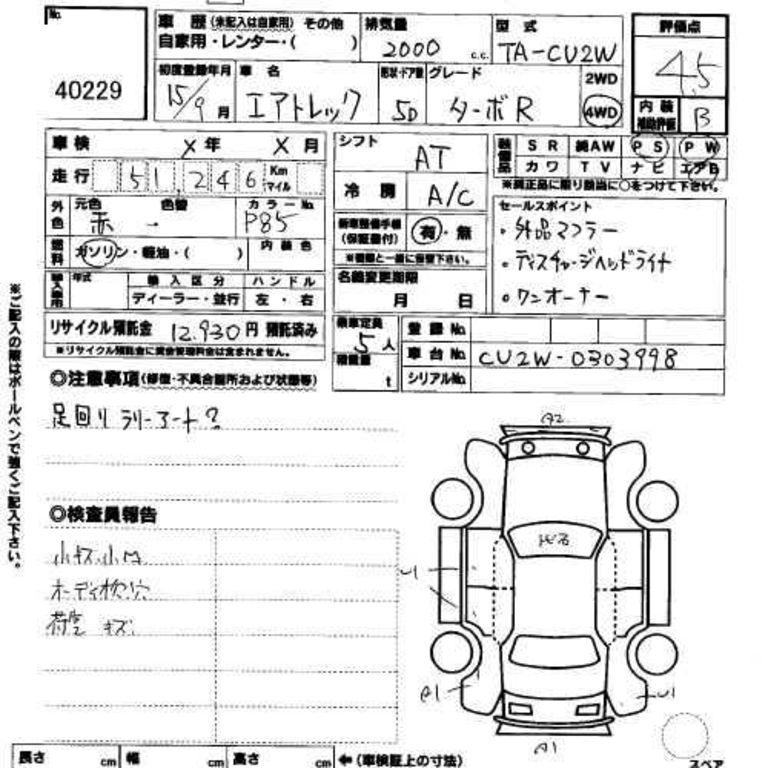 No.
40229
車歴 (未記入は自家用) その他
自家用・レンター・( )
排気量
2000 c.c.
型式
TA-CU2W
評価点
4.5
内装
補助評価 B
初度登録年月
15/9 月
車名
エアトレック
形状・ドア数
5D
グレード
ターボR
2WD
4WD
車検 X年 X月
走行 51,246 Km マイル
外色 元色 色替 カラーNo.
赤 - P85
燃料 ガソリン・軽油・( ) 内装色
輸入車用 年式 輸入区分 ハンドル
ディーラー・並行 左・右
リサイクル預託金 12,930円 預託済み
※リサイクル預託金に資金管理料金は含まれません。
シフト
AT
冷房 A/C
新車整備手帳
(保証書付) 有・無
※書類と一緒に保管下さい。
名義変更期限
月 日
乗車定員
5人
積載量
t
装備品 SR 純AW PS PW
カワ TV ナビ エアB
※純正品に限り該当に○をつけて下さい。
セールスポイント
・外品マフラー
・ディスチャージヘッドライト
・ワンオーナー
登録No.
車台No. CU2W-0303998
シリアルNo.
◎注意事項(修復・不具合個所および状態等)
足回りラリーアート?
◎検査員報告
小キズ小凹
オーディオ取穴
荷室 キズ
※ご記入の際はボールペンで強くご記入下さい。
A2
U1
A1
U1
A1
スペア
長さ cm 幅 cm 高さ cm ←(車検証上の寸法)